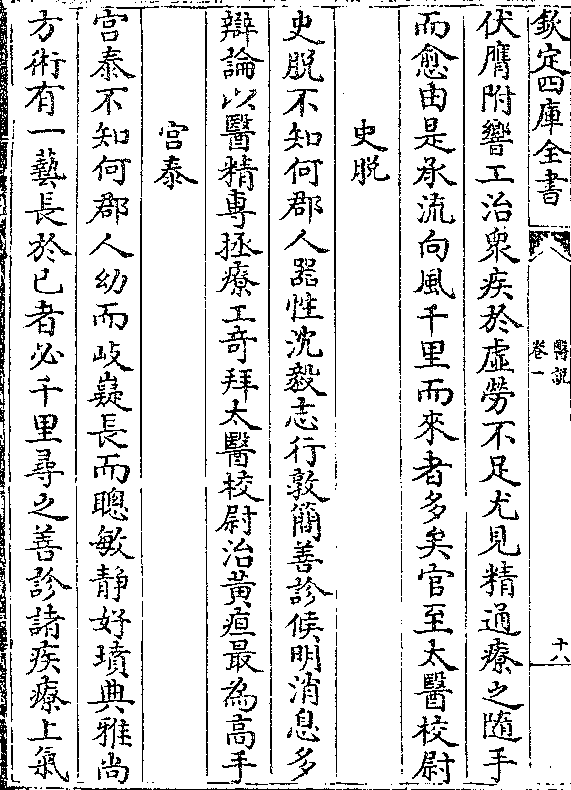 欽定四庫全書
醫說
卷一
十八
伏膺附響工治衆疾於虛勞不足尤見精通療之隨手
而愈由是承流向風千里而來者多矣官至太醫校尉
史脱
史脱不知何郡人器性沈毅志行敦簡善診候明消息多
辯論以醫精專拯療工奇拜太醫校尉治黄疸最為高手
宫泰
宫泰不知何郡人幼而岐嶷長而聰敏靜好墳典雅尚
方術有一藝長於已者必千里尋之善診諸疾療上氣